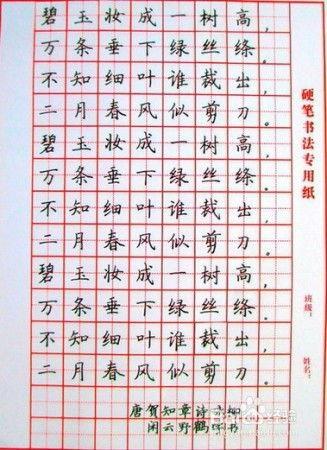 碧玉妆成一树高，
万条垂下绿丝绦。
不知细叶谁裁出，
二月春风似剪刀。
碧玉妆成一树高，
万条垂下绿丝绦。
不知细叶谁裁出，
二月春风似剪刀。
碧玉妆成一树高，
万条垂下绿丝绦。
不知细叶谁裁出，
二月春风似剪刀。
唐贺知章诗 柳
闲云野鹤 书
硬笔书法专用纸
班级：
姓名：